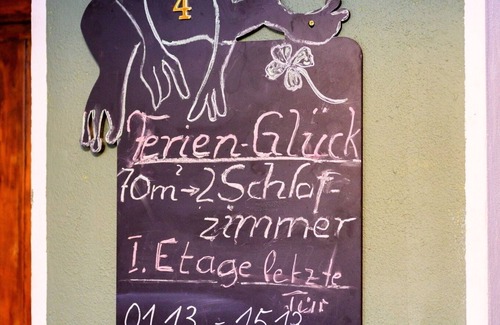 4
Ferien-Glück
70m²→2 Schlaf-
zimmer
I. Etage letzte
Tür
01.13. - 15.13